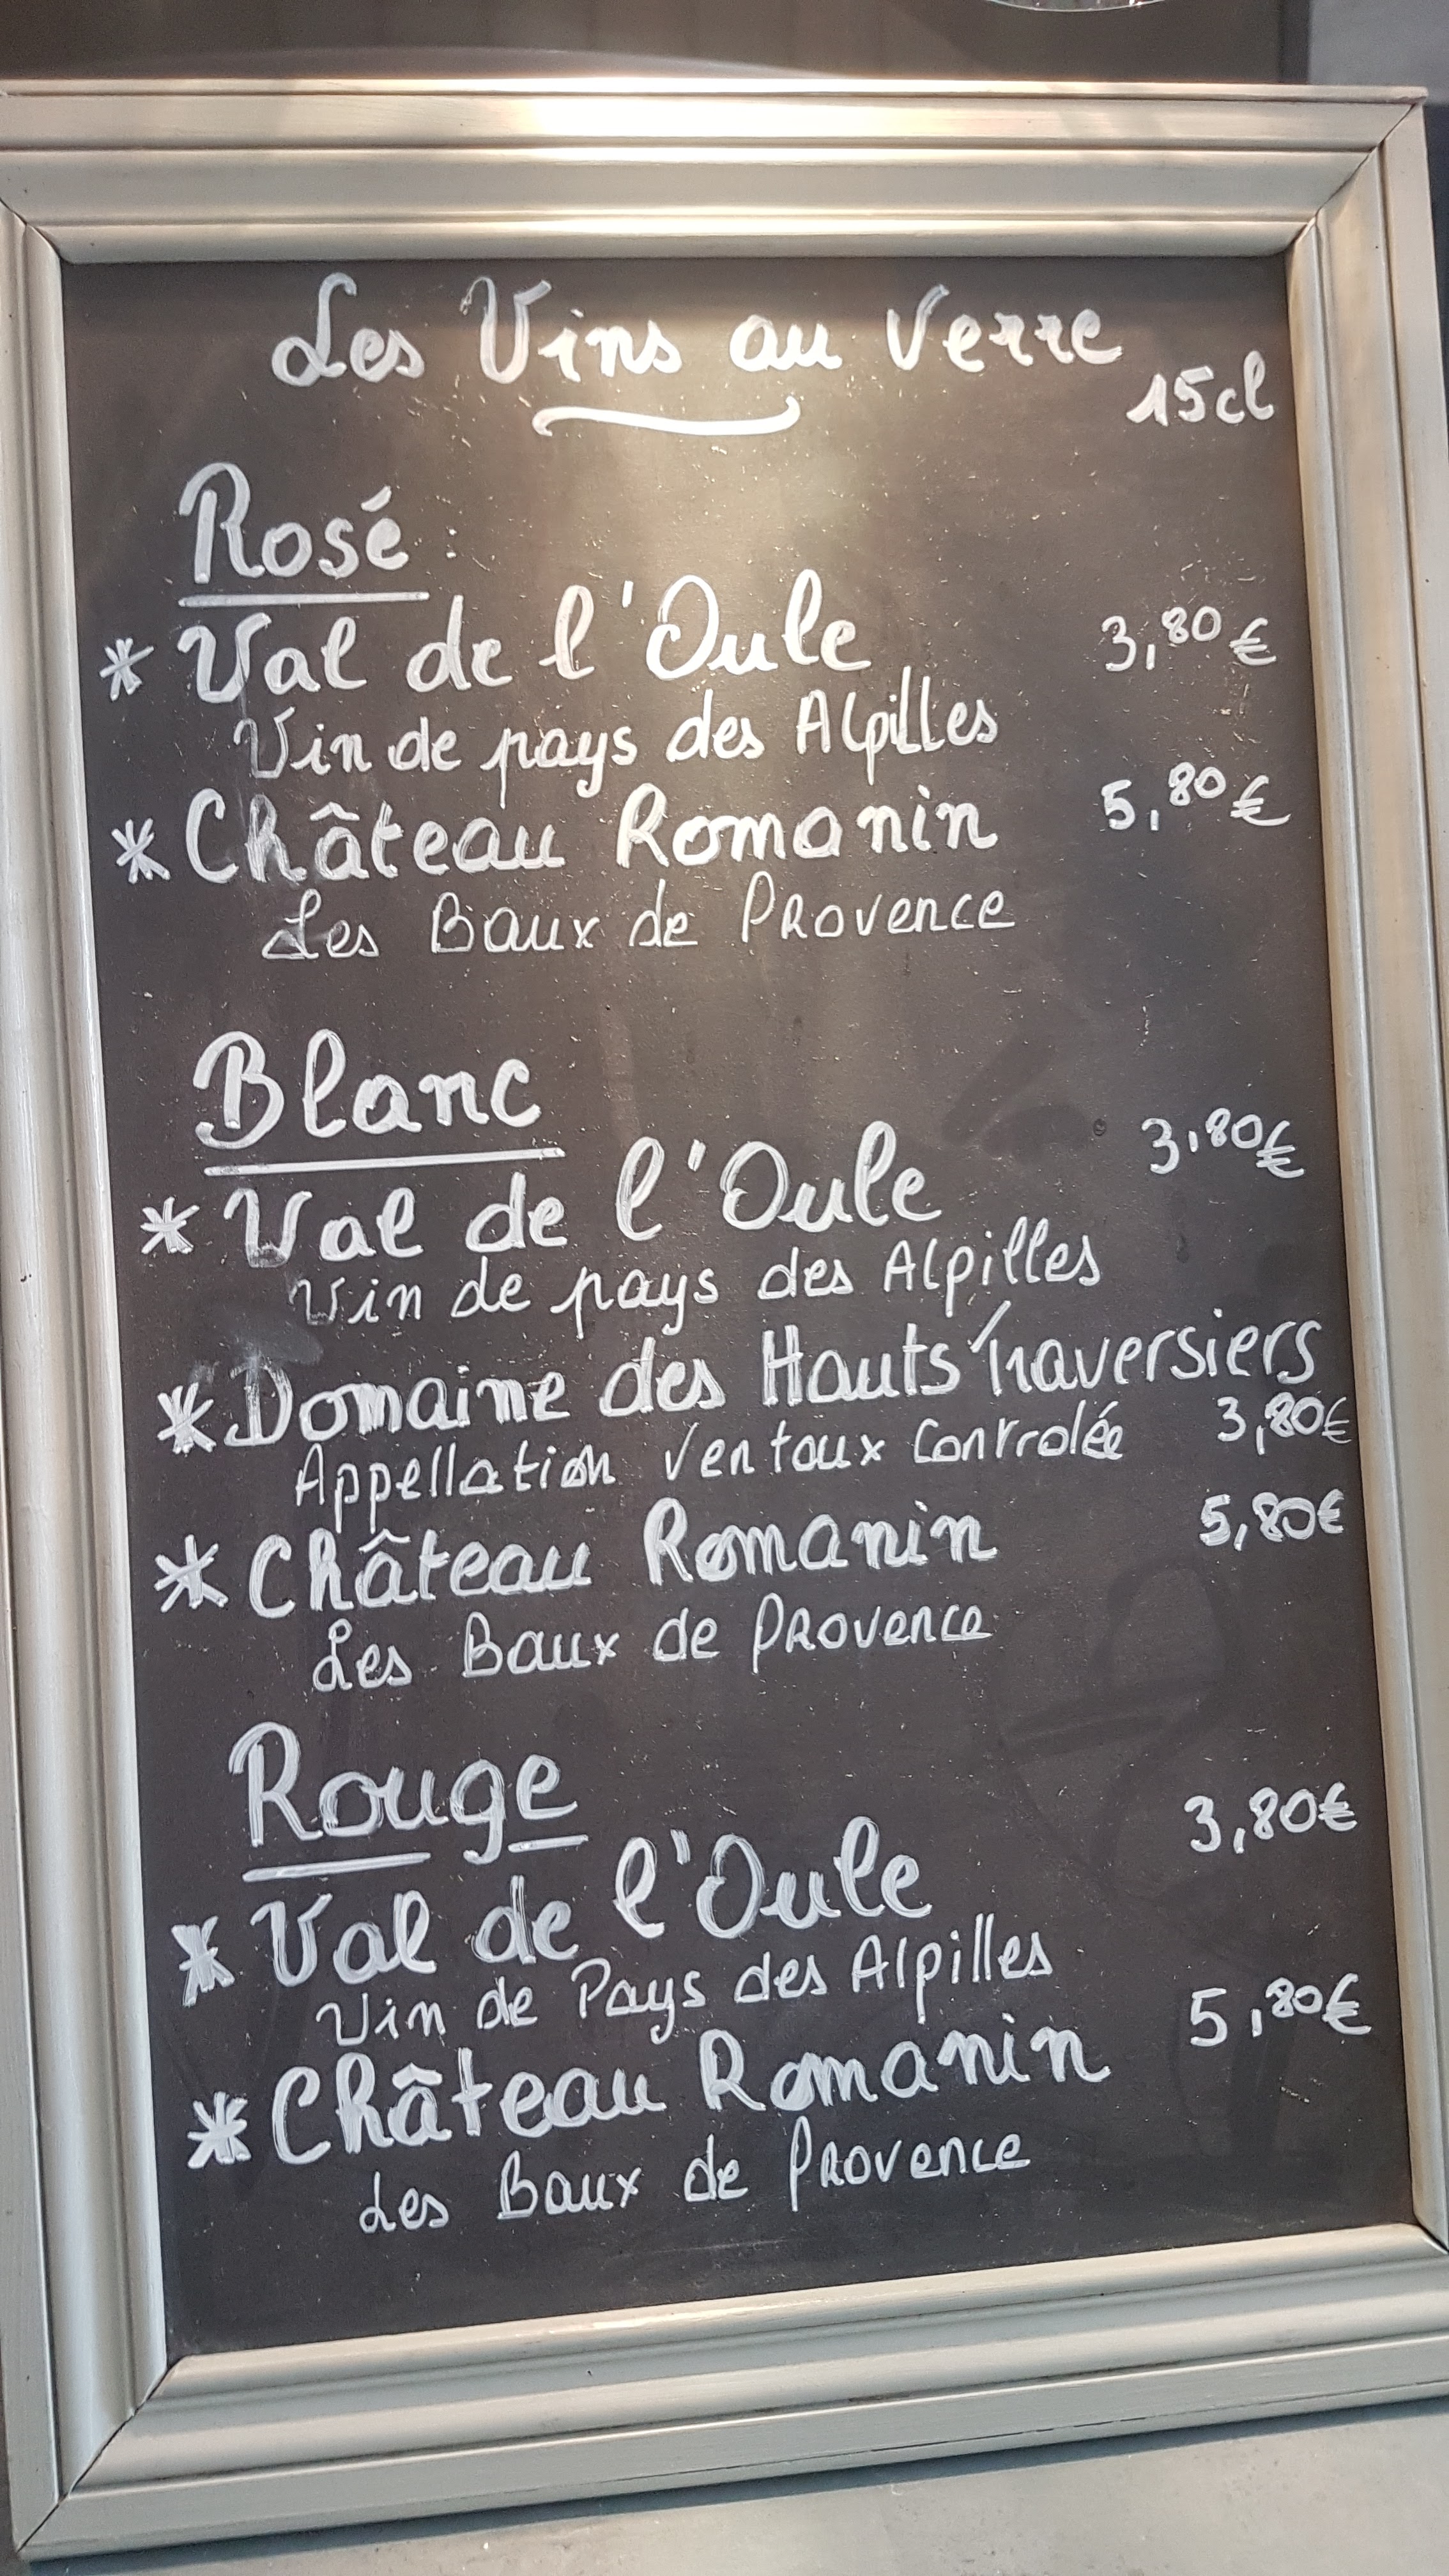 Les Vins au Verre
15cl
Rosé :
* Val de l'Oule 3,80 €
Vin de pays des Alpilles
* Château Romanin 5,80 €
Les Baux de Provence
Blanc
* Val de l'Oule 3,80€
Vin de pays des Alpilles
* Domaine des Hauts Traversiers
Appellation Ventoux Controlée 3,80€
* Château Romanin 5,80€
Les Baux de Provence
Rouge
* Val de l'Oule 3,80€
Vin de Pays des Alpilles
* Château Romanin 5,80€
Les Baux de Provence